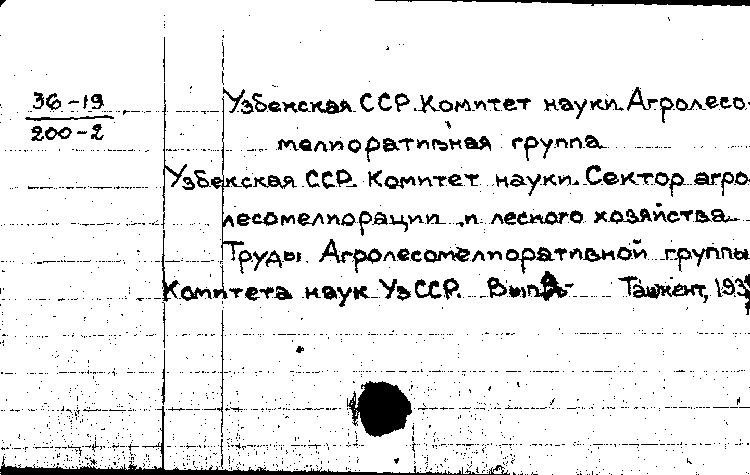 36-19
200-2
Узбекская ССР. Комитет науки. Агролесо-
мелиоративная группа
Узбекская ССР. Комитет науки. Сектор агро
лесомелиорации и лесного хозяйства
Труды Агролесомелиоративной группы
Комитета наук УзССР. Вып. Ташкент,